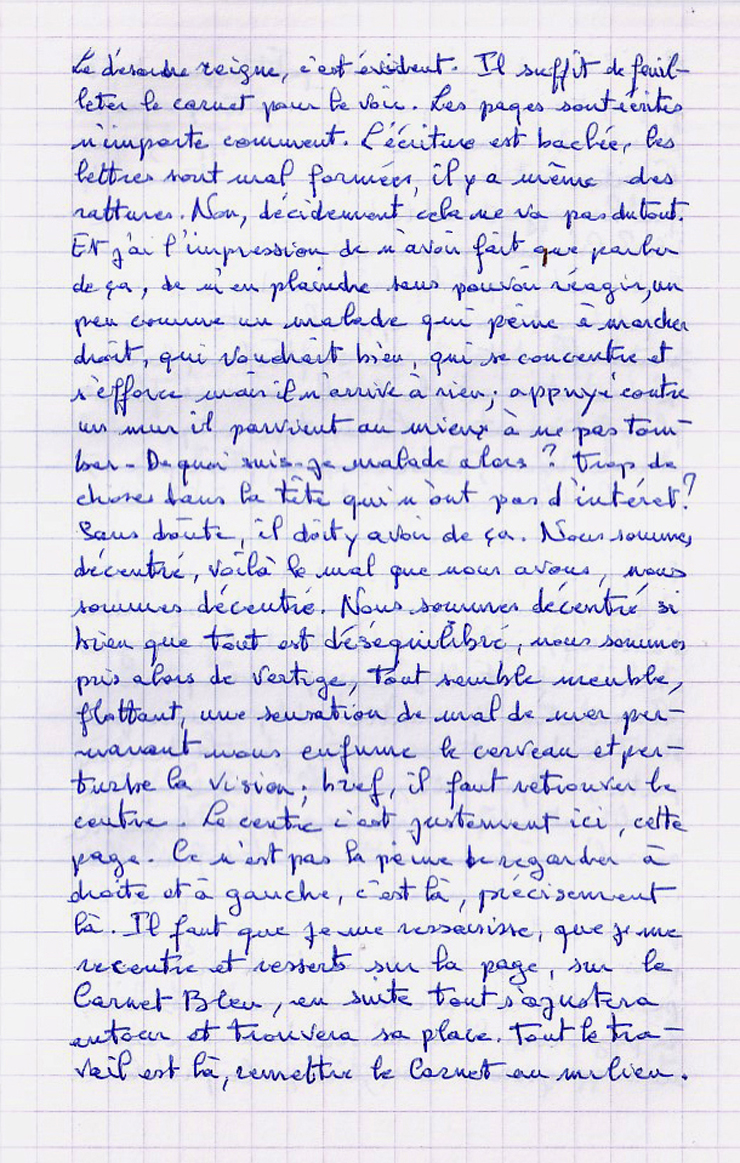 Le désordre reigne, c'est évident. Il suffit de feuil-
leter le carnet pour le voir. Les pages sont écrites
n'importe comment. L'écriture est baclée, les
lettres sont mal formées, il y a même des
rattures. Non, décidement cela ne va pas du tout.
Et j'ai l'impression de n'avoir fait que parler
de ça, de m'en plaindre sans pouvoir réagir, un
peu comme un malade qui peine à marcher
droit, qui voudrait bien, qui se concentre et
s'efforce mais il n'arrive à rien; appuyé contre
un mur il parvient au mieux à ne pas tom-
ber - De quoi suis-je malade alors ? Trop de
choses dans la tête qui n'ont pas d'intéret ?
Sans doute, il doit y avoir de ça. Nous sommes
décentré, voilà le mal que nous avons, nous
sommes décentré. Nous sommes décentré si
bien que tout est déséquilibré, nous sommes
pris alors de vertige, tout semble meuble,
flottant, une sensation de mal de mer per-
manant nous enfume le cerveau et per-
turbe la vision; bref, il faut retrouver le
centre. Le centre c'est justement ici, cette
page. Ce n'est pas la peine de regarder à
droite et à gauche, c'est là, précisement
là. Il faut que je me ressaisisse, que je me
recentre et resserts sur la page, sur le
Carnet Bleu, en suite tout s'ajustera
autour et trouvera sa place. Tout le tra-
vail est là, remettre le Carnet au milieu.